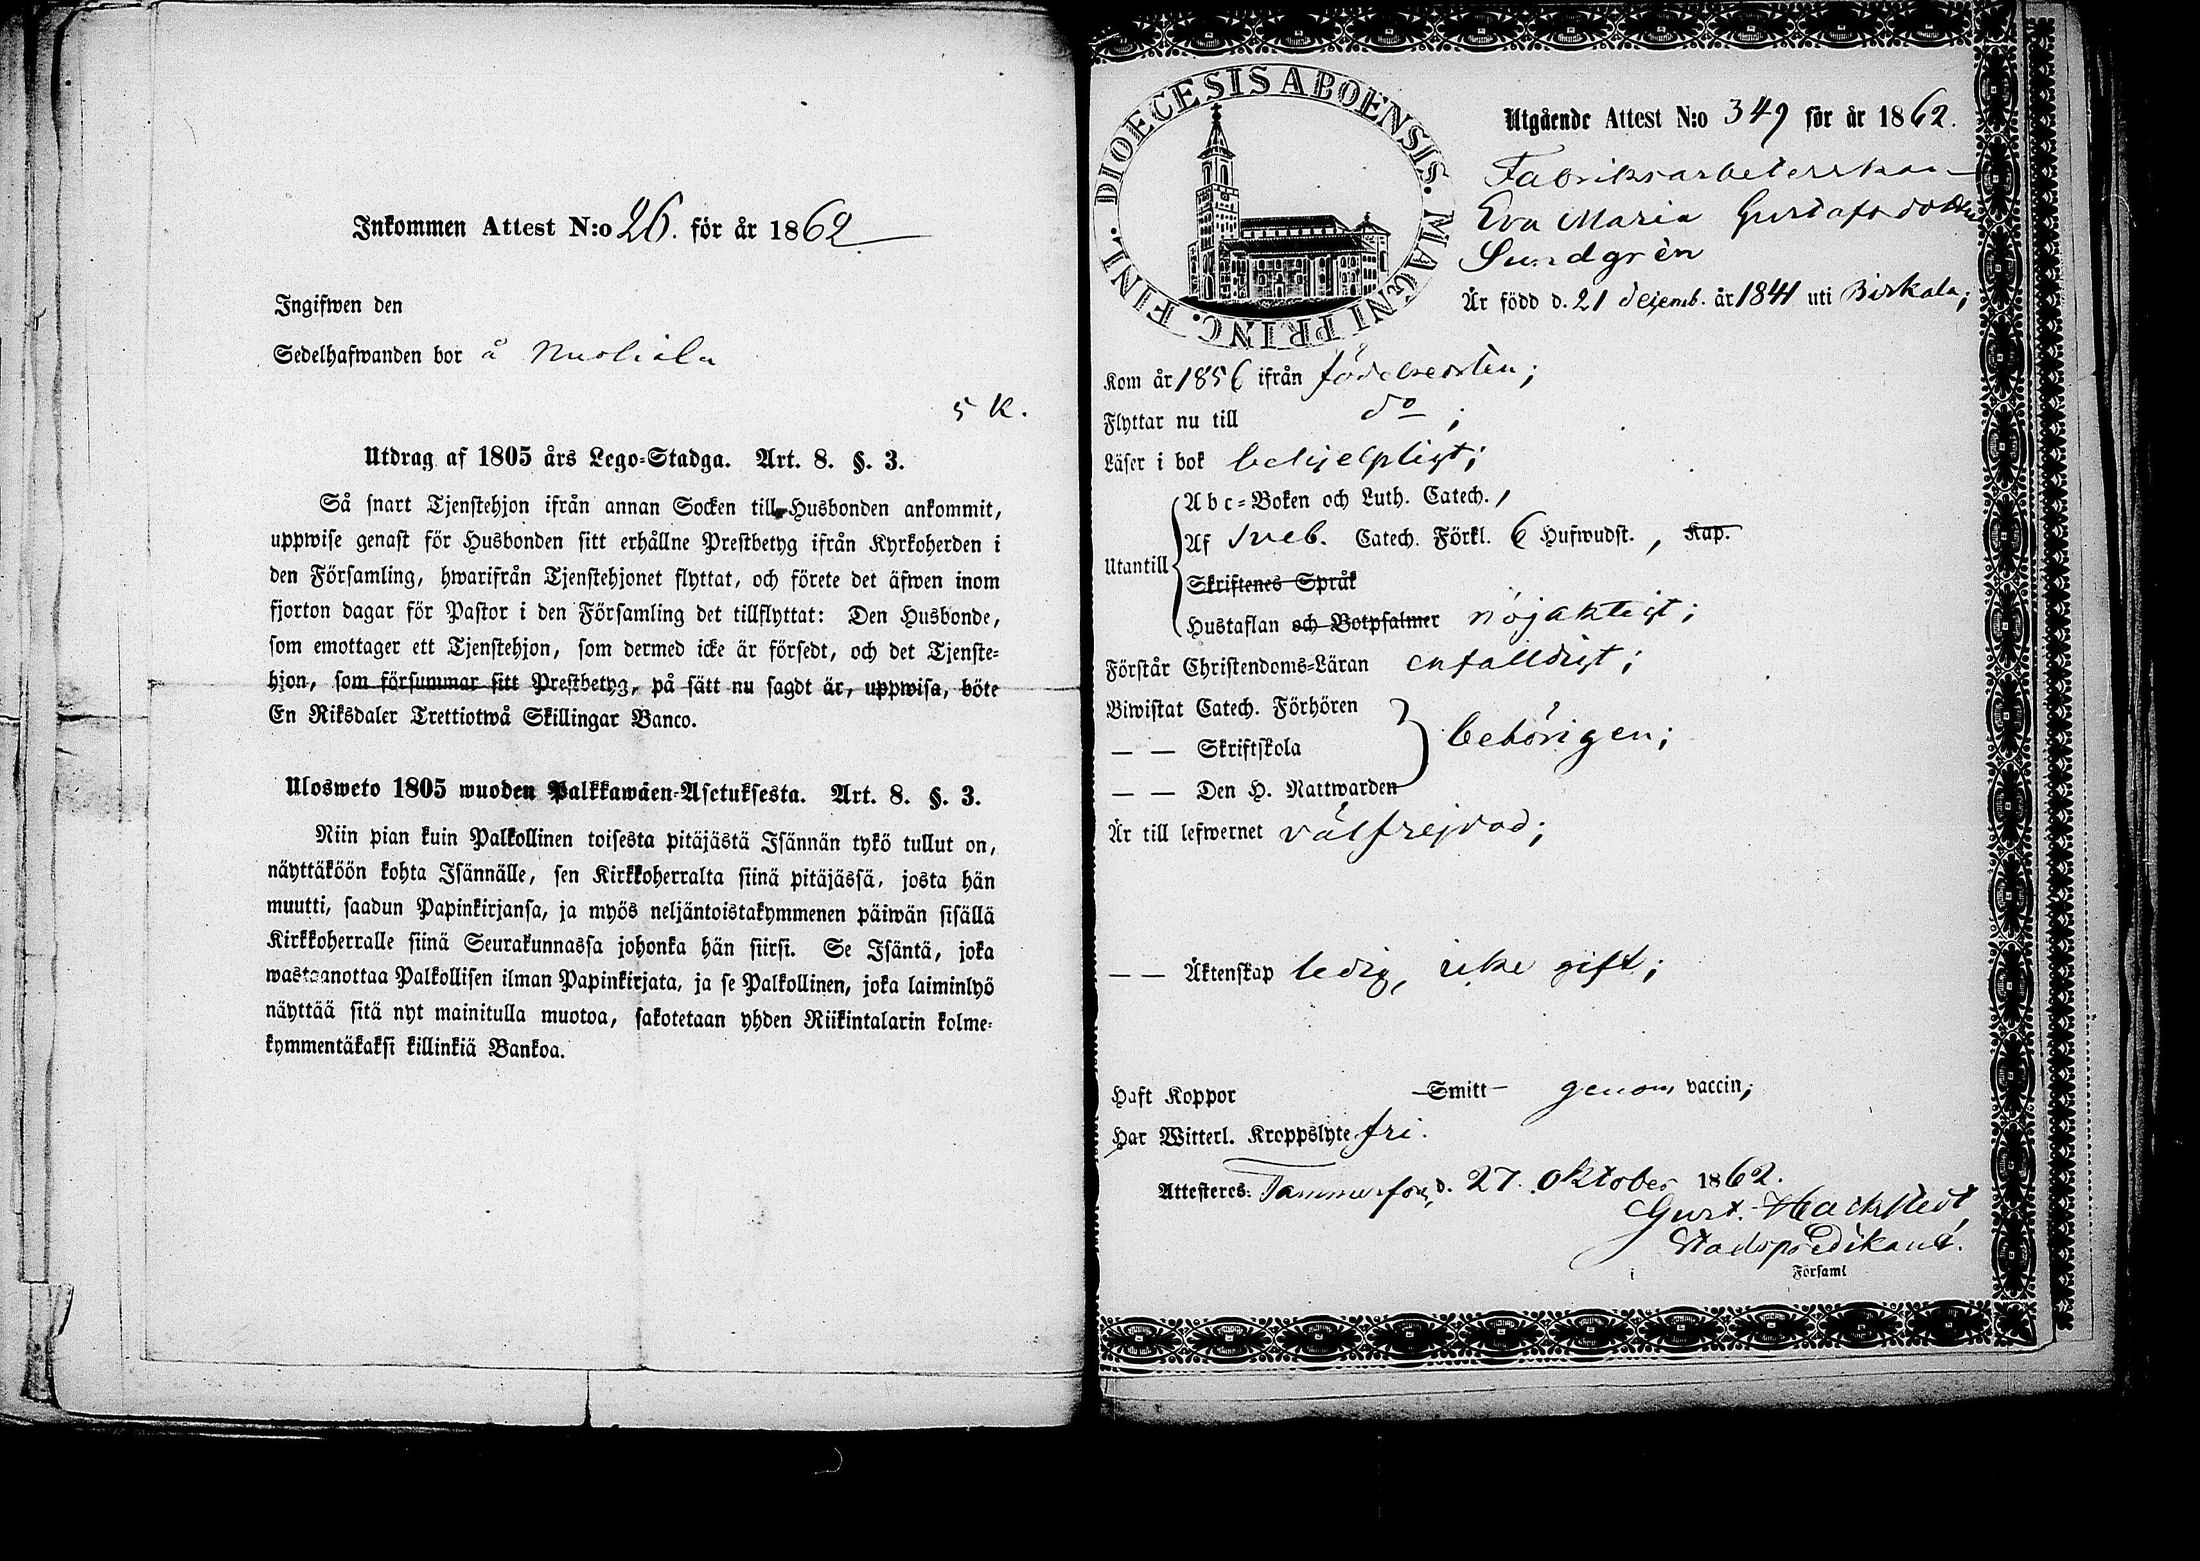 Inkommen Attest N:o 26. för år 1862
Ingifwen den
Sedelhafwanden bor å Nuoliala
5 K.
Utdrag af 1805 års Lego-Stadga. Art. 8. §. 3.
Så snart Tjenstehjon ifrån annan Socken till Husbonden ankommit,
uppwise genast för Husbonden sitt erhållne Prestbetyg ifrån Kyrkoherden i
den Församling, hwarifrån Tjenstehjonet flyttat, och förete det äfwen inom
fjorton dagar för Pastor i den Församling det tillflyttat: Den Husbonde,
som emottager ett Tjenstehjon, som dermed icke är försedt, och det Tjenste-
hjon, som försummar sitt Prestbetyg, på sätt nu sagdt är, uppwisa, böte
En Riksdaler Trettiotwå Skillingar Banco.
Ulosweto 1805 wuoden Palkkawäen-Asetuksesta. Art. 8. §. 3.
Niin pian kuin Palkollinen toisesta pitäjästä Isännän tykö tullut on,
näyttäköön kohta Isännälle, sen Kirkkoherralta siinä pitäjässä, josta hän
muutti, saadun Papinkirjansa, ja myös neljäntoistakymmenen päiwän sisällä
Kirkkoherralle siinä Seurakunnassa johonka hän siirsi. Se Isäntä, joka
wastaanottaa Palkollisen ilman Papinkirjata, ja se Palkollinen, joka laiminlyö
näyttää sitä nyt mainitulla muotoa, sakotetaan yhden Riikintalarin kolme-
kymmentäkaksi killinkiä Bankoa.
DIOECESIS ABOENSIS. MAGNI PRINC. FINL.
Utgående Attest N:o 349 för år 1862.
Fabriksarbeterskan
Eva Maria Gustafsdotter
Sundgrén
Är född d. 21 dejemb. år 1841 uti Birkala;
Kom år 1856 ifrån födelseorten;
Flyttar nu till do;
Läser i bok behjelpligt;
Abc-Boken och Luth. Catech.,
Utantill Af Sveb. Catech. Förkl. 6 Hufwudst., Kap.
Skriftenes Språk
Hustaflan och Botpsalmer nöjaktigt;
Förstår Christendoms-Läran enfalldigt;
Biwistat Catech. Förhören
— — Skriftskola behörigen;
— — Den H. Nattwarden
Är till lefwernet välfrejdad;
— — Äktenskap ledig, icke gift;
Haft Koppor Smitt genom vaccin;
Har Witterl. Kroppslyte fri.
Attesteres: Tammerfors, d. 27. Oktober 1862.
Gust. Hackstedt
Stadspredikant.
i Församl